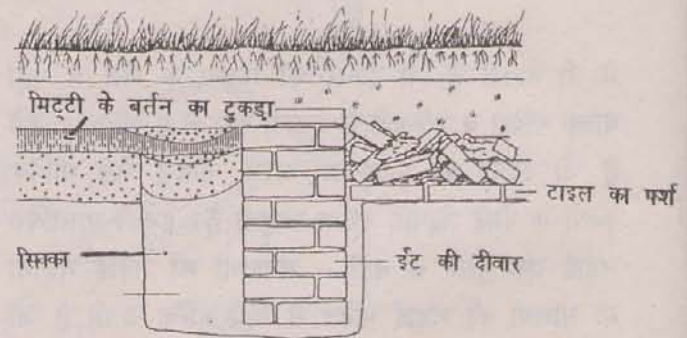 मिट्टी के बर्तन का टुकड़ा
टाइल का फर्श
सिक्का
ईंट की दीवार